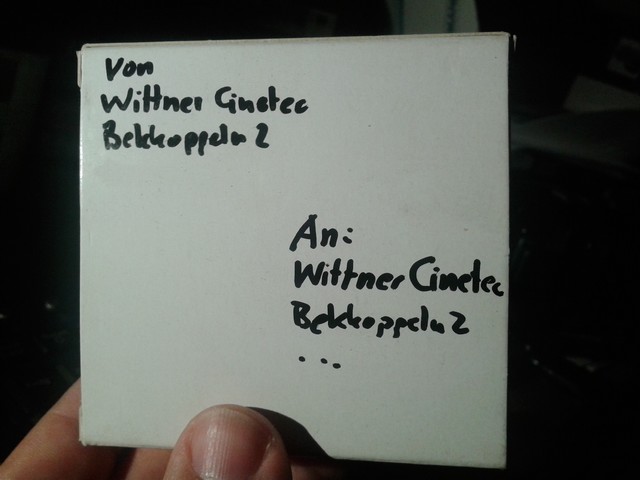 Von
Wittner Cinetec
Bekkoppeln 2
An:
Wittner Cinetec
Bekkoppeln 2
...